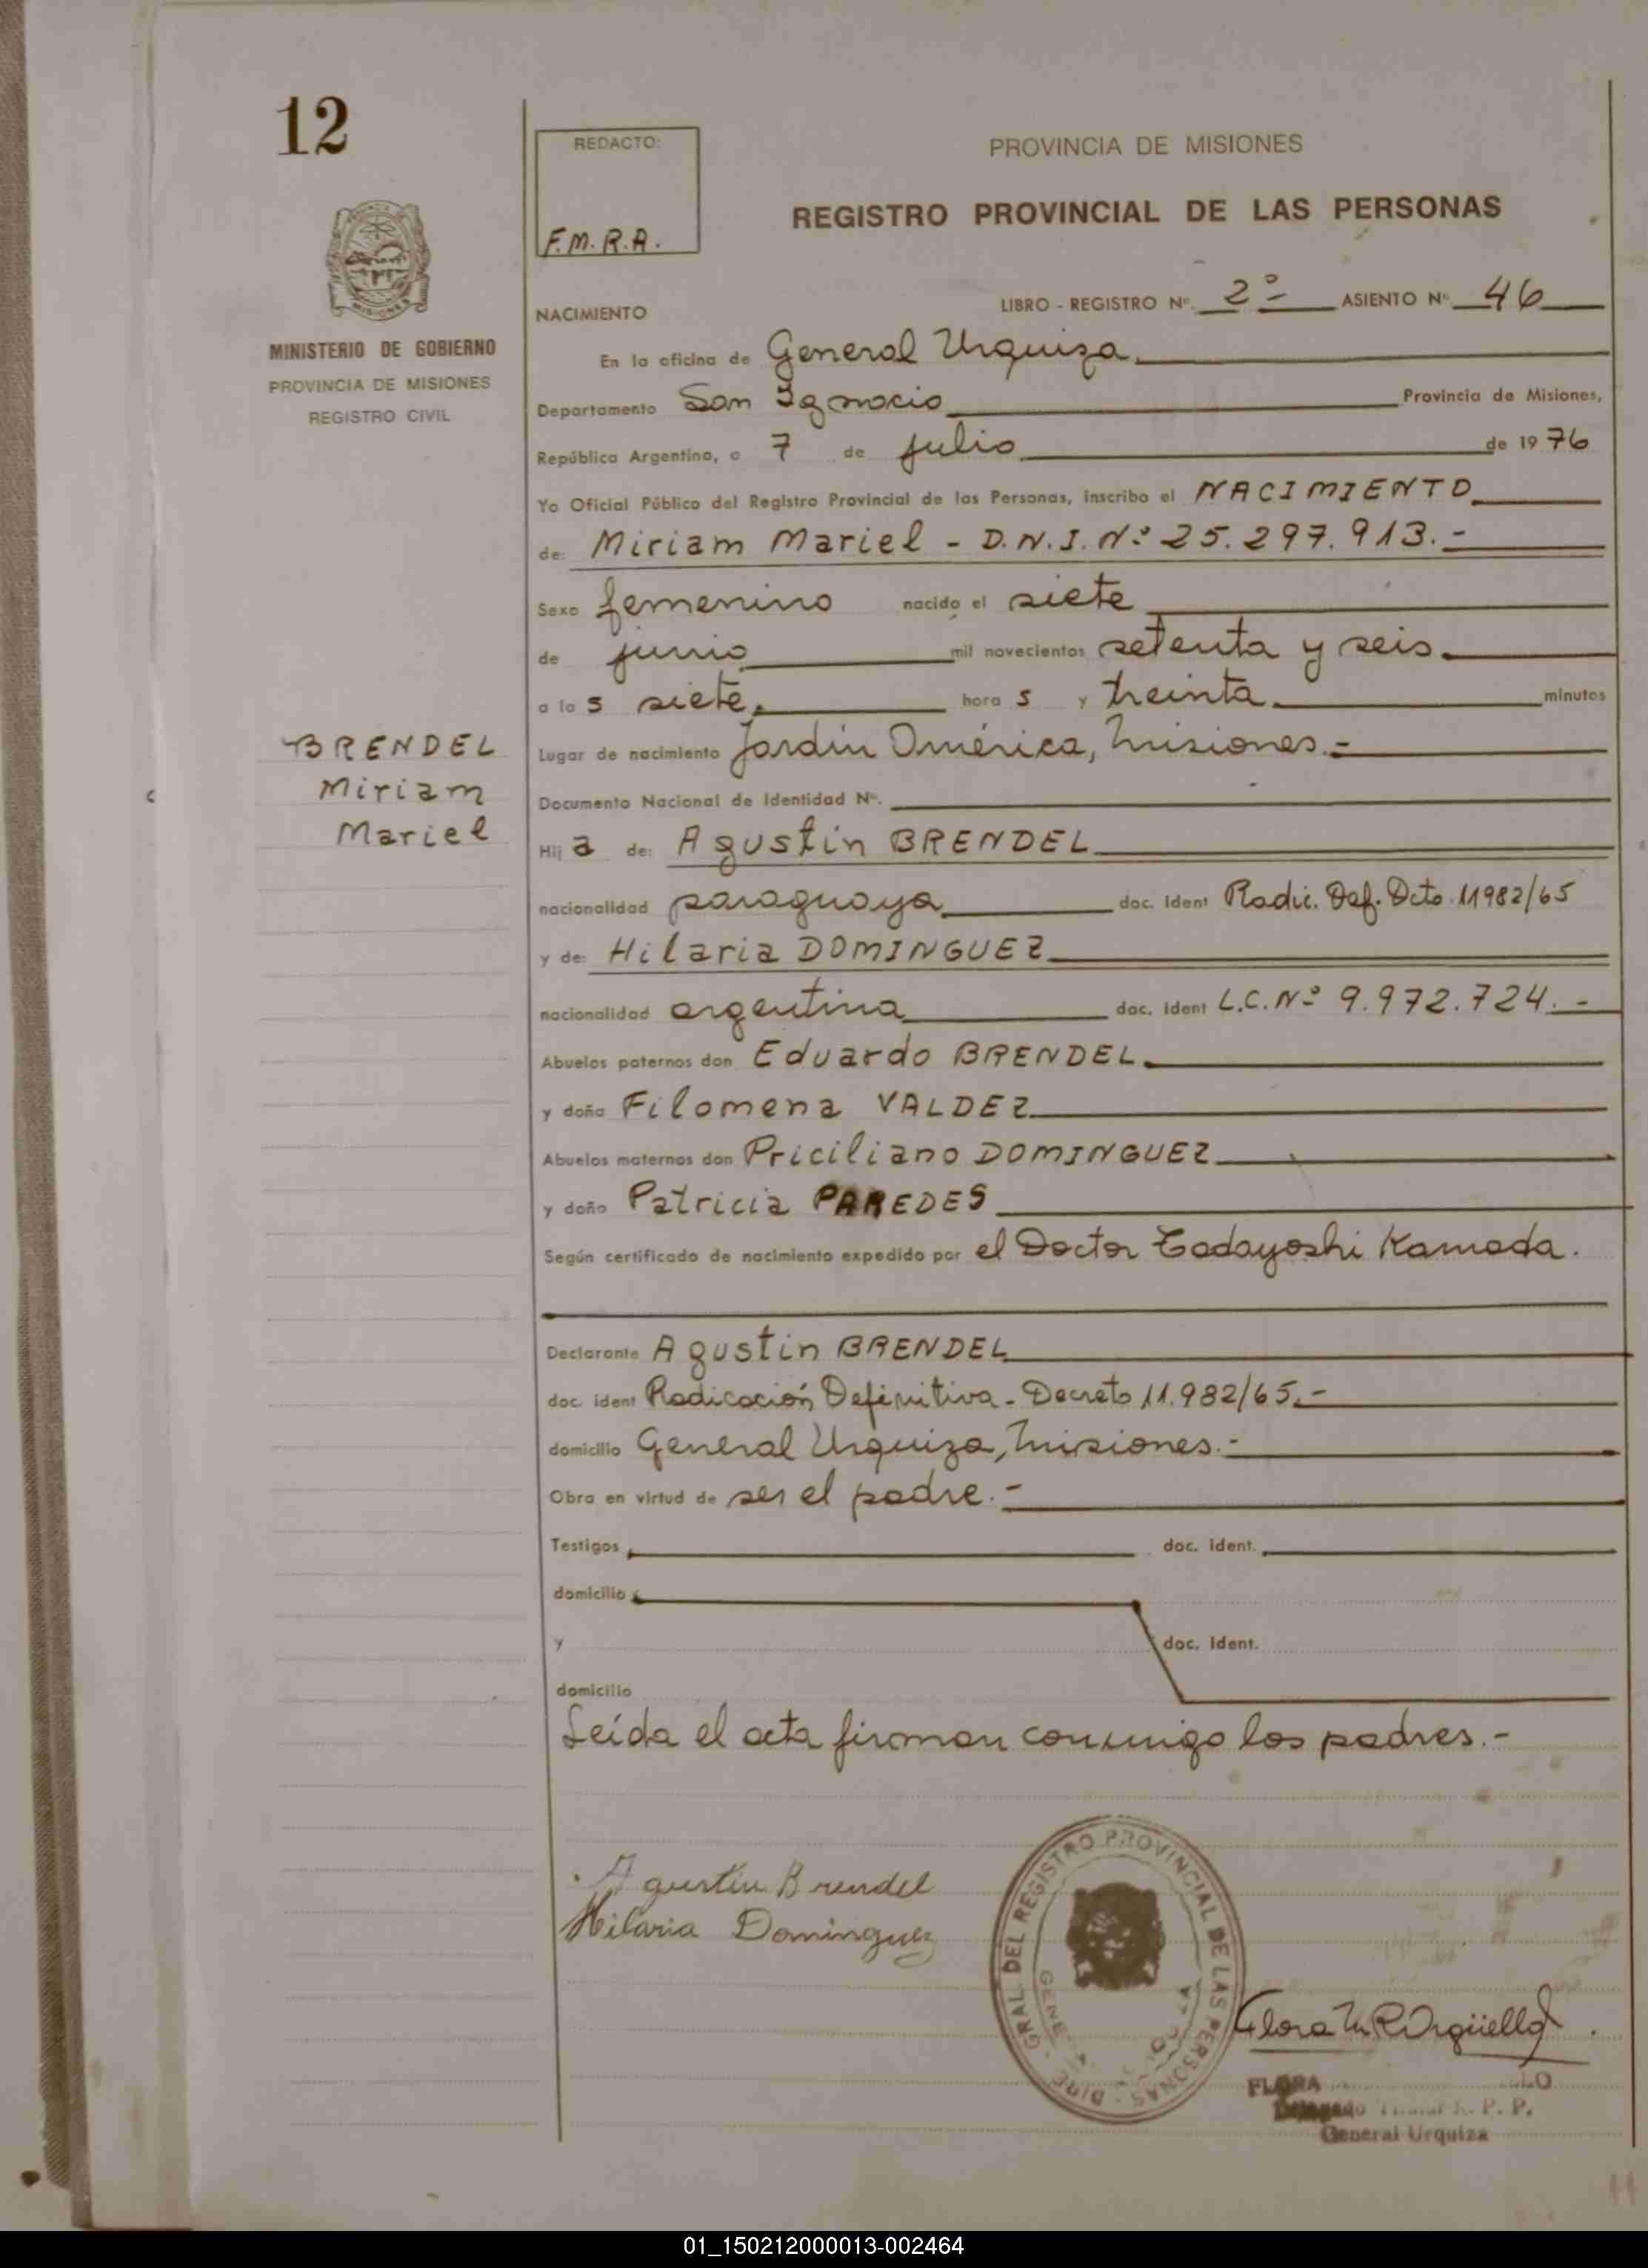 12
REDACTO:
F.M.R.A.
PROVINCIA DE MISIONES
REGISTRO PROVINCIAL DE LAS PERSONAS
MINISTERIO DE GOBIERNO
PROVINCIA DE MISIONES
REGISTRO CIVIL
NACIMIENTO
LIBRO - REGISTRO Nº. 2º ASIENTO Nº 46
En la oficina de General Urquiza.
Departamento San Ignacio Provincia de Misiones,
República Argentina, a 7 de julio de 1976
Yo Oficial Público del Registro Provincial de las Personas, inscribo el NACIMIENTO
de: Miriam Mariel - D.N.I. Nº 25.297.913.-
Sexo femenino nacido el siete
de junio mil novecientos setenta y seis.
a las siete. horas y treinta. minutos
Lugar de nacimiento Jardín América, Misiones.-
Documento Nacional de Identidad Nº.
BRENDEL
Miriam
Mariel
Hija de: Agustín BRENDEL
nacionalidad paraguaya doc. ident Radic. Def. Dcto. 11982/65
y de: Hilaria DOMINGUEZ
nacionalidad argentina doc. ident L.C. Nº 9.972.724.-
Abuelos paternos don Eduardo BRENDEL.
y doña Filomena VALDEZ
Abuelos maternos don Priciliano DOMINGUEZ
y doña Patricia PAREDES
Según certificado de nacimiento expedido por el Doctor Tadayoshi Kamada.
Declarante Agustín BRENDEL
doc. ident Radicación Definitiva - Decreto 11.982/65.-
domicilio General Urquiza, Misiones.-
Obra en virtud de ser el padre.-
Testigos doc. ident.
domicilio
y doc. ident.
domicilio
Leída el acta firman conmigo los padres.-
Agustín Brendel
Hilaria Dominguez
DIRE. GRAL. DEL REGISTRO PROVINCIAL DE LAS PERSONAS
Flora M R Argüello
FLORA
Delegado Titular R. P. P.
General Urquiza
01_150212000013-002464